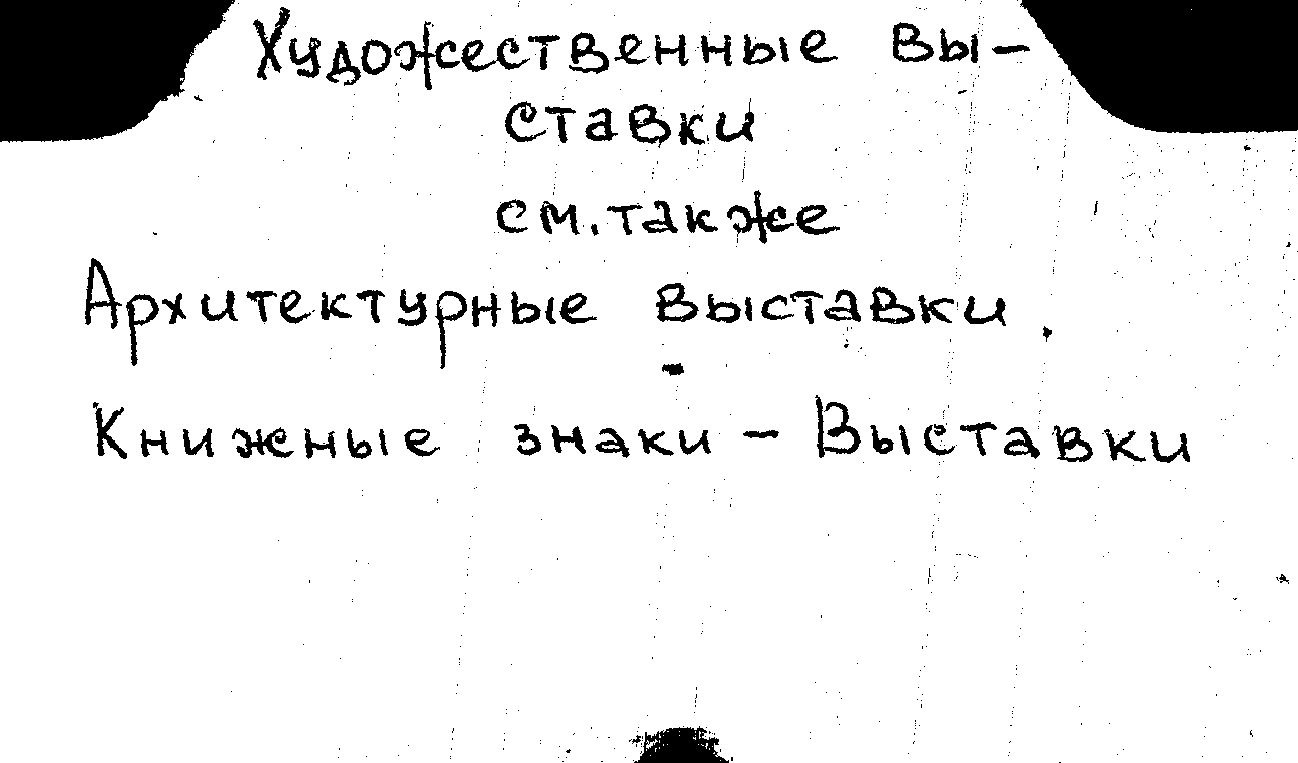 Художественные вы-
ставки
см. также
Архитектурные выставки.
Книжные знаки - Выставки